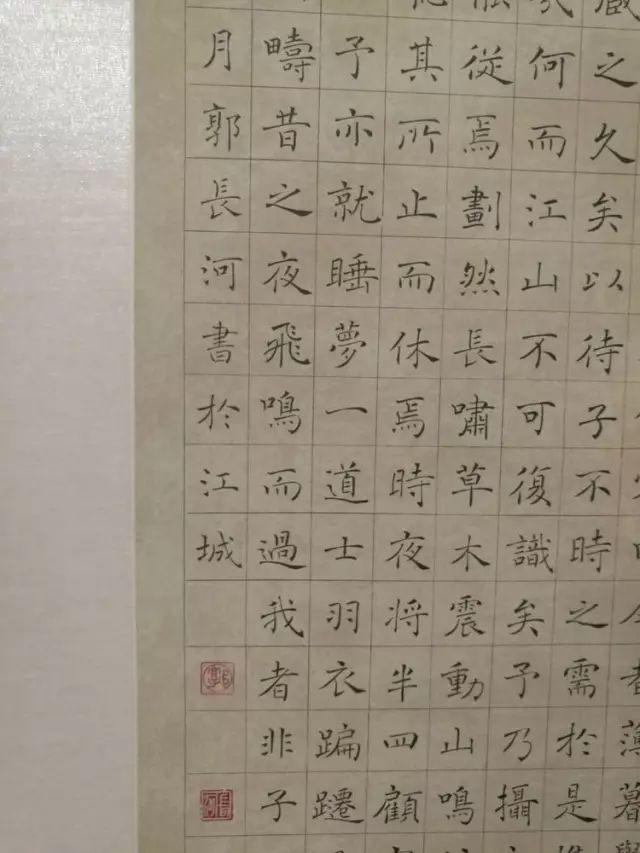 者薄暮
藏之久矣以待子不時之需於是
何而江山不可復識矣予乃攝
從焉劃然長嘯草木震動山鳴
其所止而休焉時夜将半四顧
予亦就睡夢一道士羽衣蹁躚
疇昔之夜飛鳴而過我者非子
月郭長河書於江城
郭